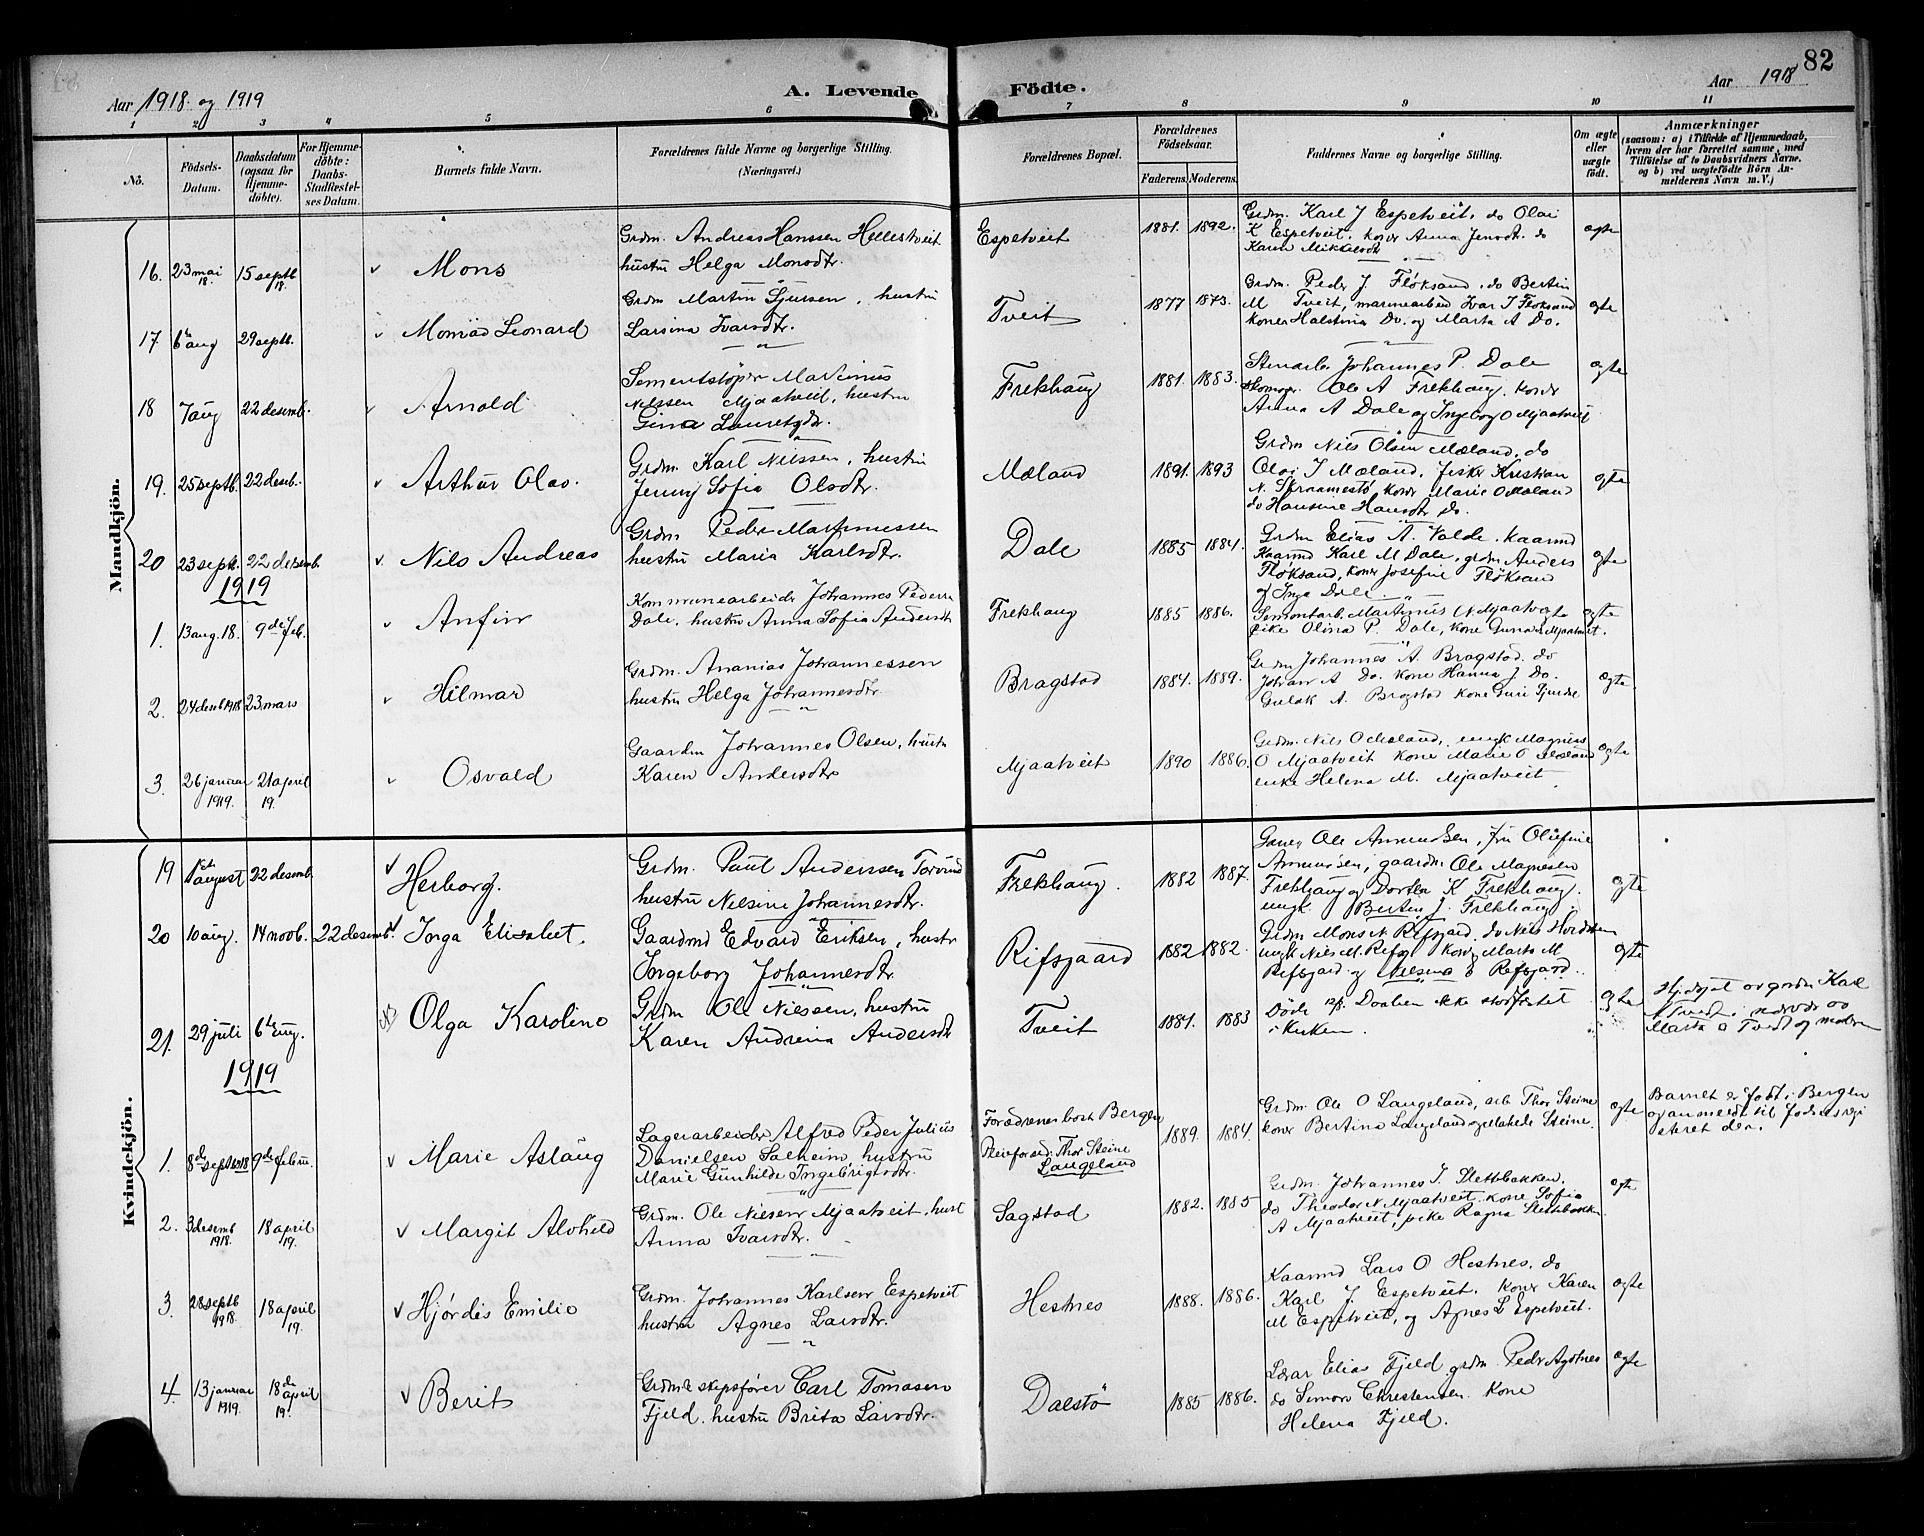 82
Aar 1918 og 1919
A. Levende Födte.
Aar 1918
1 2 3 4 5 6 7 8 9 10 11
No.
Födsels-Datum.
Daabsdatum (ogsaa for Hjemme-döbte).
For Hjemme-döbte: Daabs-Stadfæstel-ses Datum.
Barnets fulde Navn.
Forældrenes fulde Navne og borgerlige Stilling. (Næringsvei.)
Forældrenes Bopæl.
Forældrenes Födselsaar.
Faderens. Moderens.
Faddernes Navne og borgerlige Stilling.
Om ægte eller uægte födt.
Anmærkninger
(saasom: a) i Tilfælde af Hjemmedaab, hvem der har forrettet samme, med Tilföielse af to Daabsvidners Navne, og b) ved uægtefödte Börn An-melderens Navn m. V.)
Mandkjön.
16. 23 mai 18. 15 septb 18. Mons
Grdm. Andreas Hanssen Hellestveit
hustru Helga Monsdtr.
Espetveit 1881. 1892.
Grdm. Karl J Espetveit, do Olai
K Espetveit. koner Anna Jensdt. do
Karen Mikkelsdtr
ægte
17 6te aug 29 septb. Monrad Leonard
Grdm Martin Sjursen, hustru
Larsina Ivarsdtr.
Tveit 1877 1873.
Grdm. Peder J. Fløksand, do Bertin
M Tveit, minearbeid Ivar J Fløksand
koner Halstina Do. og Marta A Do.
ægte
18 7 aug 22 desemb. Arnold
Sementstöper Martinus
Nilssen Mjaatveid, hustru
Gina Lauretzdtr.
Frekhaug 1881. 1883.
Stenarb. Johannes P. Dale
Skomagr. Ole A Frekhaug, koner
Anna A Dale og Ingeborg O Mjaatveit
ægte
19. 25 septb. 22 desb. Arthur Olav.
Grdm. Karl Nilssen, hustru
Jenny Sofia Olsdtr.
Mæland 1891. 1893
Grdm Nils Olsen Mæland, do
Olai J Mæland, fisker Kristian
N. Skraamestø, koner Marie O Mæland
do Hansine Hansdtr Do.
ægte
20 23 septb. 22 desemb. Nils Andreas
Grdm Peder Martinussen
hustru Maria Karlsdtr.
Dale 1885 1884.
Grdm Elias A. Valde, kaarmd
Kaarmd Karl M Dale, grdm Anders
Fløksand, koner Josefine Fløksand
og Inga Dale
ægte
1919
1. 13 aug. 18. 9de feb. Anfin
Kommunearbeider Johannes Pedersen
Dale, hustru Anna Sofia Andersdt
Frekhaug 1885 1886.
Sementarb. Martinus N. Mjaatveit
pike Olina P. Dale, kone Gunna Mjaatveit.
ægte
2. 24 desb 1918 23 mars Hilmar
Grdm. Ananias Johannessen
hustru Helga Johannesdtr.
Bragstad 1884. 1889.
Grdm Johannes A. Bragstad. do
Johan A Do. kone Hanna J Do.
Gulak A. Bragstad kone Guri Gjerde
ægte
3. 26 januar 1919. 21 april 19. Osvald
Gaardm Johannes Olsen, hustr
Karen Andersdtr
Mjaatveit 1890 1886.
Grdm. Nils O Mæland, ungk Magnus
O Mjaatveit kone Marie O Mæland
enke Helena M. Mjaatveit
ægte
Kvindekjön.
19 1ste august 22 desemb. Herborg.
Grdm. Paul Anderssen Torvund
hustru Nilsine Johannesdtr.
Frekhaug. 1882 1887.
Ole Amundsen, fru Olufine
Amundsen, gaardm. Ole Magnesen
Frekhaug og Dortea K Frekhaug.
ungk. Bertin J. Frekhaug.
ægte
20 10 aug. 14 novb. 22 desemb. Inga Elisabet.
Gaardmd Edvard Eriksen, hustr
Ingeborg Johannesdtr.
Rifsgaard 1882 1882.
Grdm Mons N Refsgard. do Nils
ungk Nils M. Refsg. Koner Marta M
Refsgard og Nilsina E Refsgard.
ægte
21. 29 juli 6te aug. Olga Karoline
Grdm Ole Nilssen, hustru
Karen Andrina Andersdtr
Tveit 1881. 1883
Døde Daaben ikke stadfæstet
i kirken.
ægte
Hjdøpt av grdm Karl
Tveit, nærvær av
Marta O Tveit og moderen
1919
1. 8de septb 1918 9de febru. Marie Aslaug
Lagerarbeider Alfred Peder Julius
Danielsen Salheim hustru
Marie Gunhilde Ingebrigtsdtr.
Foreldrenes bost Bergen
Pleieforæd. Thor Steine
Langeland
1889. 1884.
Grdm. Ole O Langeland, arb Thor Steine
koner Bertina Langeland og Steine.
ægte
Barnet er født i Bergen
og anmeldt til fødselsregi
steret der.
2. 3 desemb 1918. 18 april 19. Margit Alvhild
Grdm. Ole Nilsen Mjaatveit, hust
Anna Ivarsdtr.
Sagstad 1882. 1885
Grdm. Johannes I. Slettebakken.
do Theodor N Mjaatveit. kone Sofia
A Mjaatveit, pike Ragna Slettebakken
ægte
3. 28 septb 1918. 18 april 19. Hjørdis Emilie
Grdm. Johannes Karlsen Espetveit
hustru Agnes Larsdtr.
Hestnes 1888. 1886.
Kaarmd Lars O Hestnes, do
Karl J. Espetveit. Koner Karen
M Espetveit, og Agnes L Espetveit.
ægte
4. 13 januar 1919. 18de april 19. Berit
Grdm & skipsfører Carl Tomasen
Fjeld, hustru Brita Larsdtr.
Dalstö 1885 1886.
Lærar Elias Fjeld, grdm. Peder Agotnes
do Simon Christensen. Kone
Helena Fjeld.
ægte